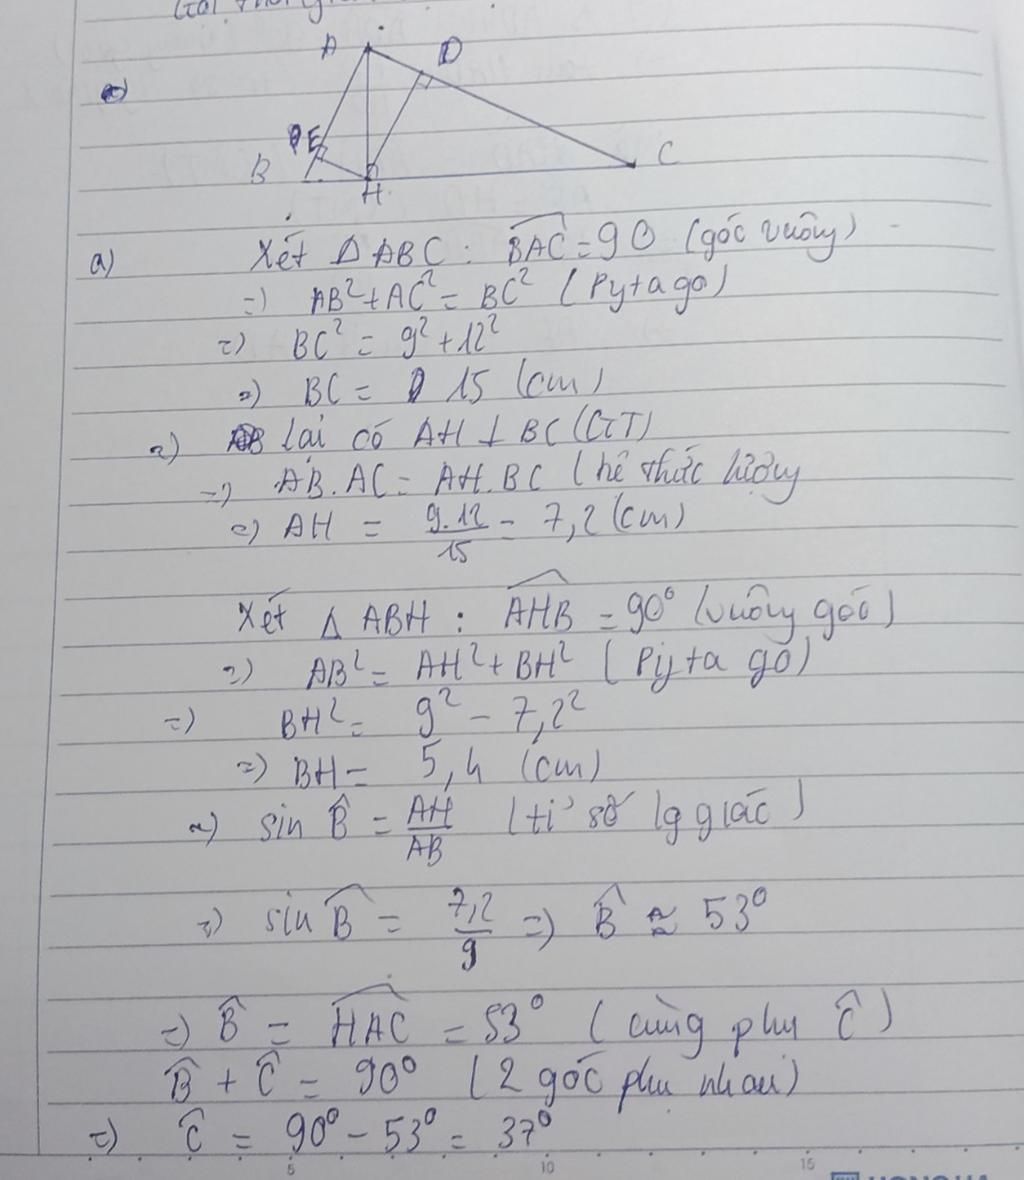 A D
E
B H C
a) Xét Δ ABC : BAC = 90 (góc vuông)
=) AB² + AC² = BC² (Pytago)
=) BC² = 9² + 12²
=) BC = 15 (cm)
=) lại có AH ⊥ BC (GT)
=) AB. AC = AH. BC (hê thức lượng
=) AH = 9.12/15 = 7,2 (cm)
Xét Δ ABH : AHB = 90° (vuông góc)
=) AB² = AH² + BH² (Pyta go)
=) BH² = 9² - 7,2²
=) BH = 5,4 (cm)
=) sin B̂ = AH/AB (tỉ số lg giác)
=) sin B̂ = 7,2/9 =) B̂ ≈ 53°
=) B̂ = HAC = 53° (cùng phụ Ĉ)
B̂ + Ĉ = 90° (2 góc phụ nhau)
=) Ĉ = 90° - 53° = 37°
5 10 15